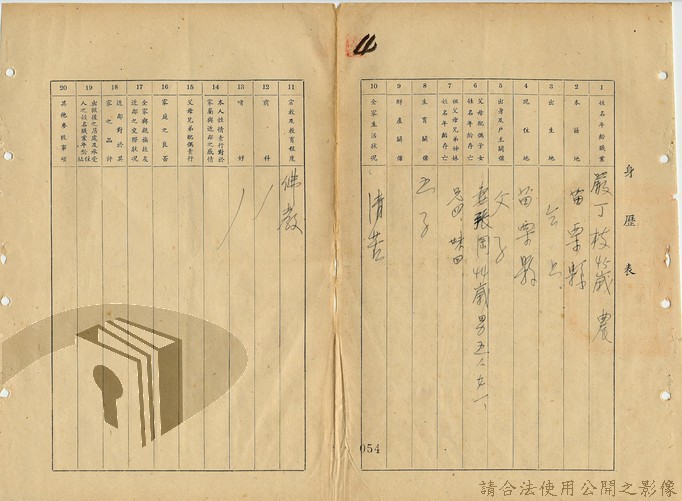 4
身歷表
1 姓名年齡職業
嚴丁枝 45歲 農
2 本籍地
苗栗縣
3 出生地
仝上
4 現住地
苗栗縣
5 出身及戶主關係
父子
6 父母配偶子女姓名年齡存亡
歲男五人女一
7 祖父母兄弟姊妹姓名年齡存亡
8 生育關係
五子
9 財產關係
10 全家生活狀況
清苦
11 宗教及教育程度
佛教
12 前科
13 嗜好
14 本人性情素行對於家屬與近鄰之感情
15 父母兄弟配偶素行
16 家庭之良否
17 全家與親族故友近鄰之交際狀況
18 近鄰對於其家之品評
19 出獄後之居處及承受人之姓名職業年齡住址
20 其他參攷事項
054
請合法使用公開之影像